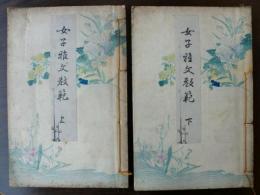 女子雅文教範 上
女子雅文教範 下